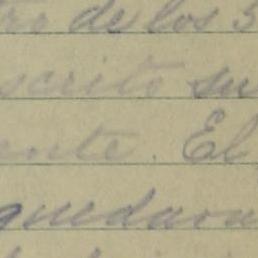 tro de los 3
scrito su
ente. El
quedaron